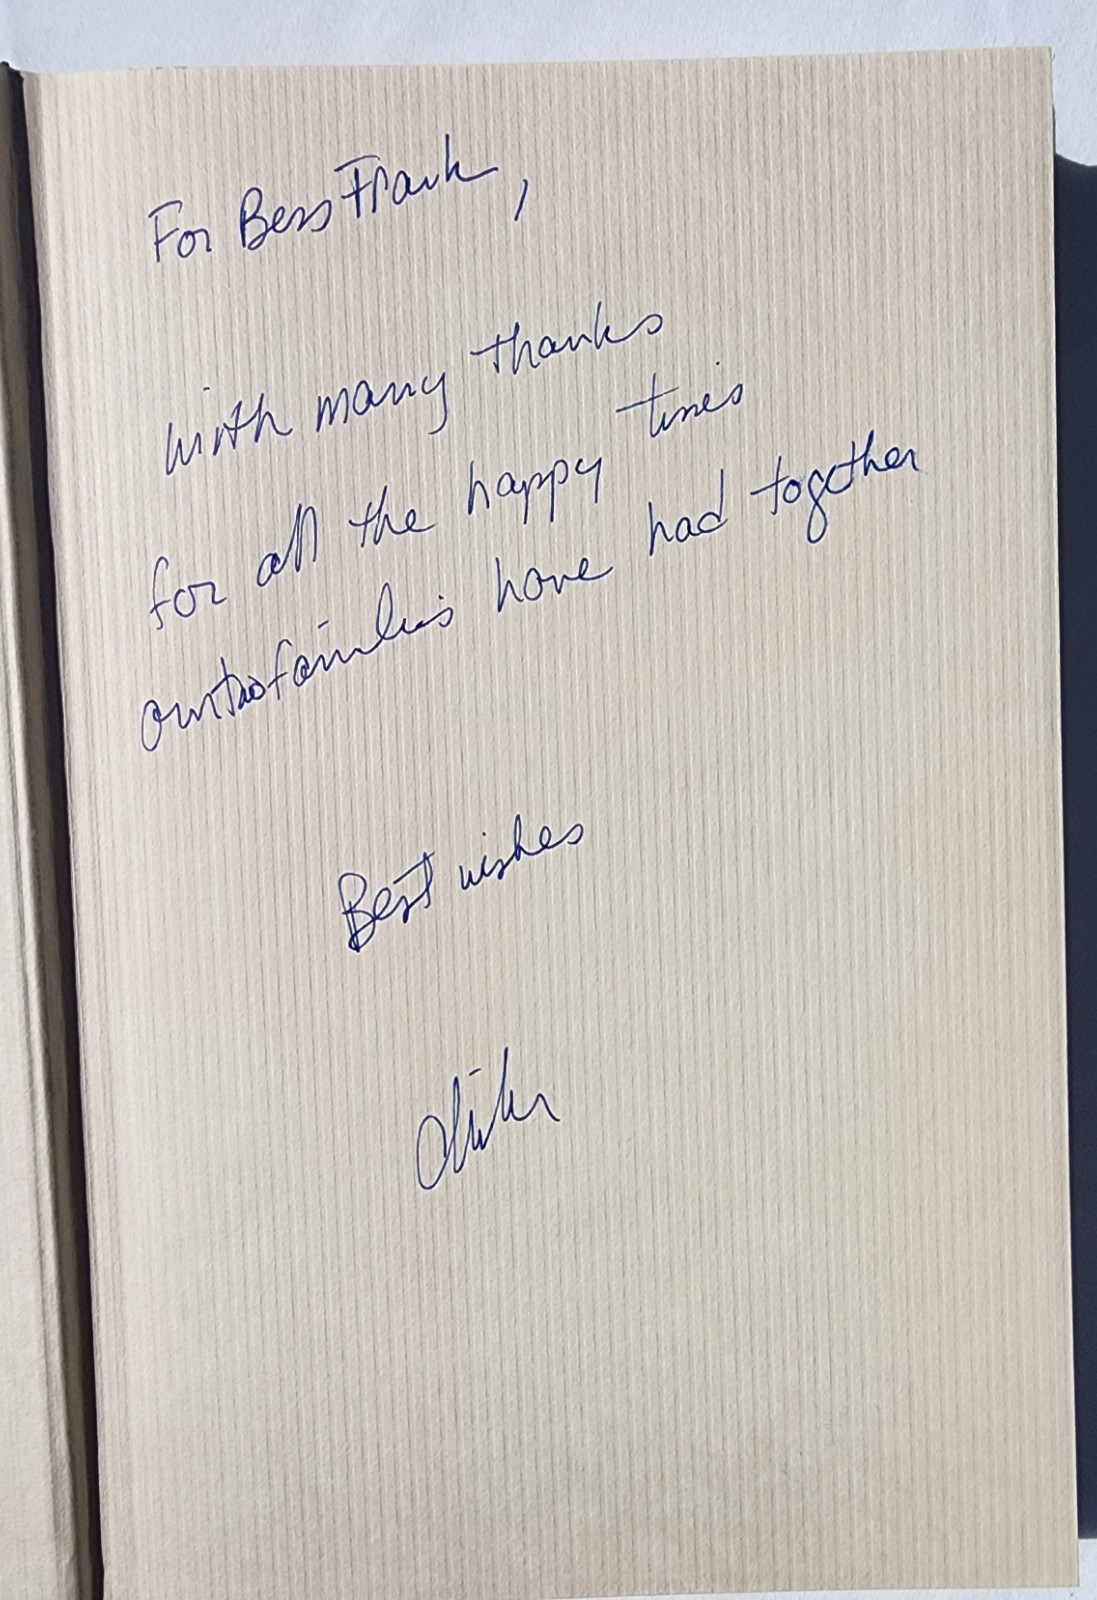 For Bess Frank,
with many thanks
for all the happy times
our two families have had together
Best wishes